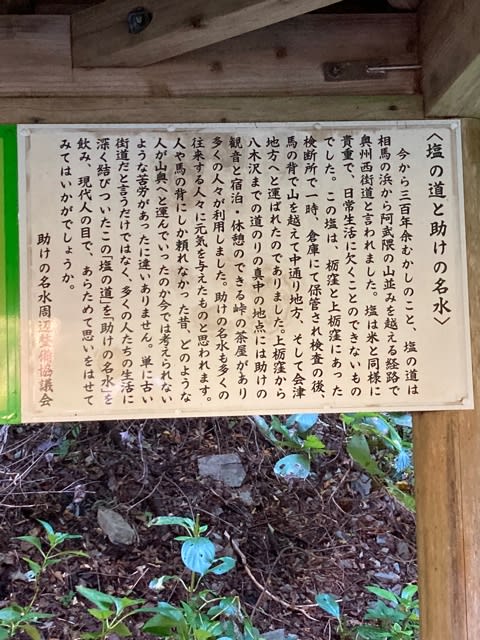 〈塩の道と助けの名水〉
今から三百年余むかしのこと、塩の道は
相馬の浜から阿武隈の山並みを越える経路で
奥州西街道と言われました。塩は米と同様に
貴重で、日常生活に欠くことのできないもの
でした。この塩は、栃窪と上栃窪にあった
検断所で一時、倉庫にて保管され検査の後、
馬の背で山を越えて中通り地方、そして会津
地方へと運ばれたのでありました。上栃窪から
八木沢までの道のりの真中の地点には助けの
観音と宿泊・休憩のできる峠の茶屋があり
多くの人々が利用しました。助けの名水も多くの
往来する人々に元気を与えたものと思われます。
人や馬の背にしか頼れなかった昔、どのような
人が山奥へと運んでいったのか今では考えられない
ような苦労があったに違いありません。単に古い
街道だと言うだけではなく、多くの人たちの生活に
深く結びついたこの「塩の道」を「助けの名水」を
飲み、現代人の目で、あらためて思いをはせて
みてはいかがでしょうか。
助けの名水周辺整備協議会